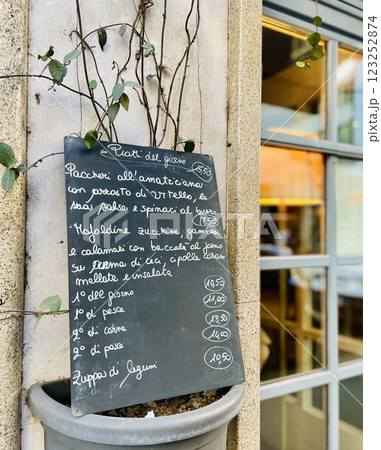 Piatti del giorno
Paccheri all'amatriciana
con arrosto di vitello, la
sua salsa e spinaci al burro
Mafaldine zucchine, gamberi
e calamari con baccalà al forno
su crema di ceci, cipolle cara=
mellate e insalata
1° del giorno 10,50
1° di pesce 11,00
2° di carne 13,50
2° di pesce 14,00
Zuppa di legumi 10,50
PIXTA
123252874